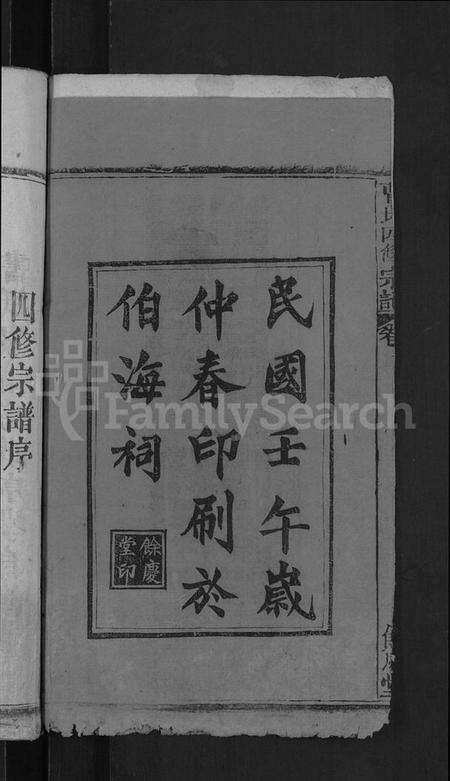 民國壬午歲
仲春印刷於
伯海祠
餘慶
堂印
四修宗譜序
氏四修宗譜卷
FamilySearch